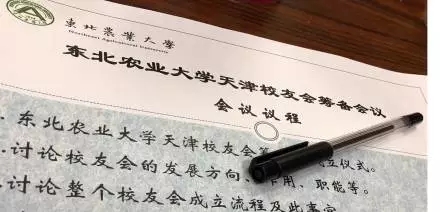 東北農業大學
Northeast Agricultural University
东北农业大学天津校友会筹备会议
会议议程
.东北农业大学天津校友会筹 立仪式。
.讨论校友会的发展方向 作用、职能等。
.讨论整个校友会成立流程及此事宜